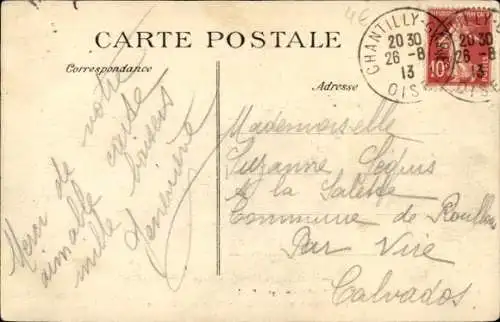 4€
CARTE POSTALE
Correspondance
Adresse
CHANTILLY
20 30
26 - 8
13
OISE
20 30
26 - 8
13
OISE
10c
Merci de votre
aimable carte
mille baisers
Geneviève
Mademoiselle
Suzanne
à la Salette
Commune de Roullours
Par Vire
Calvados